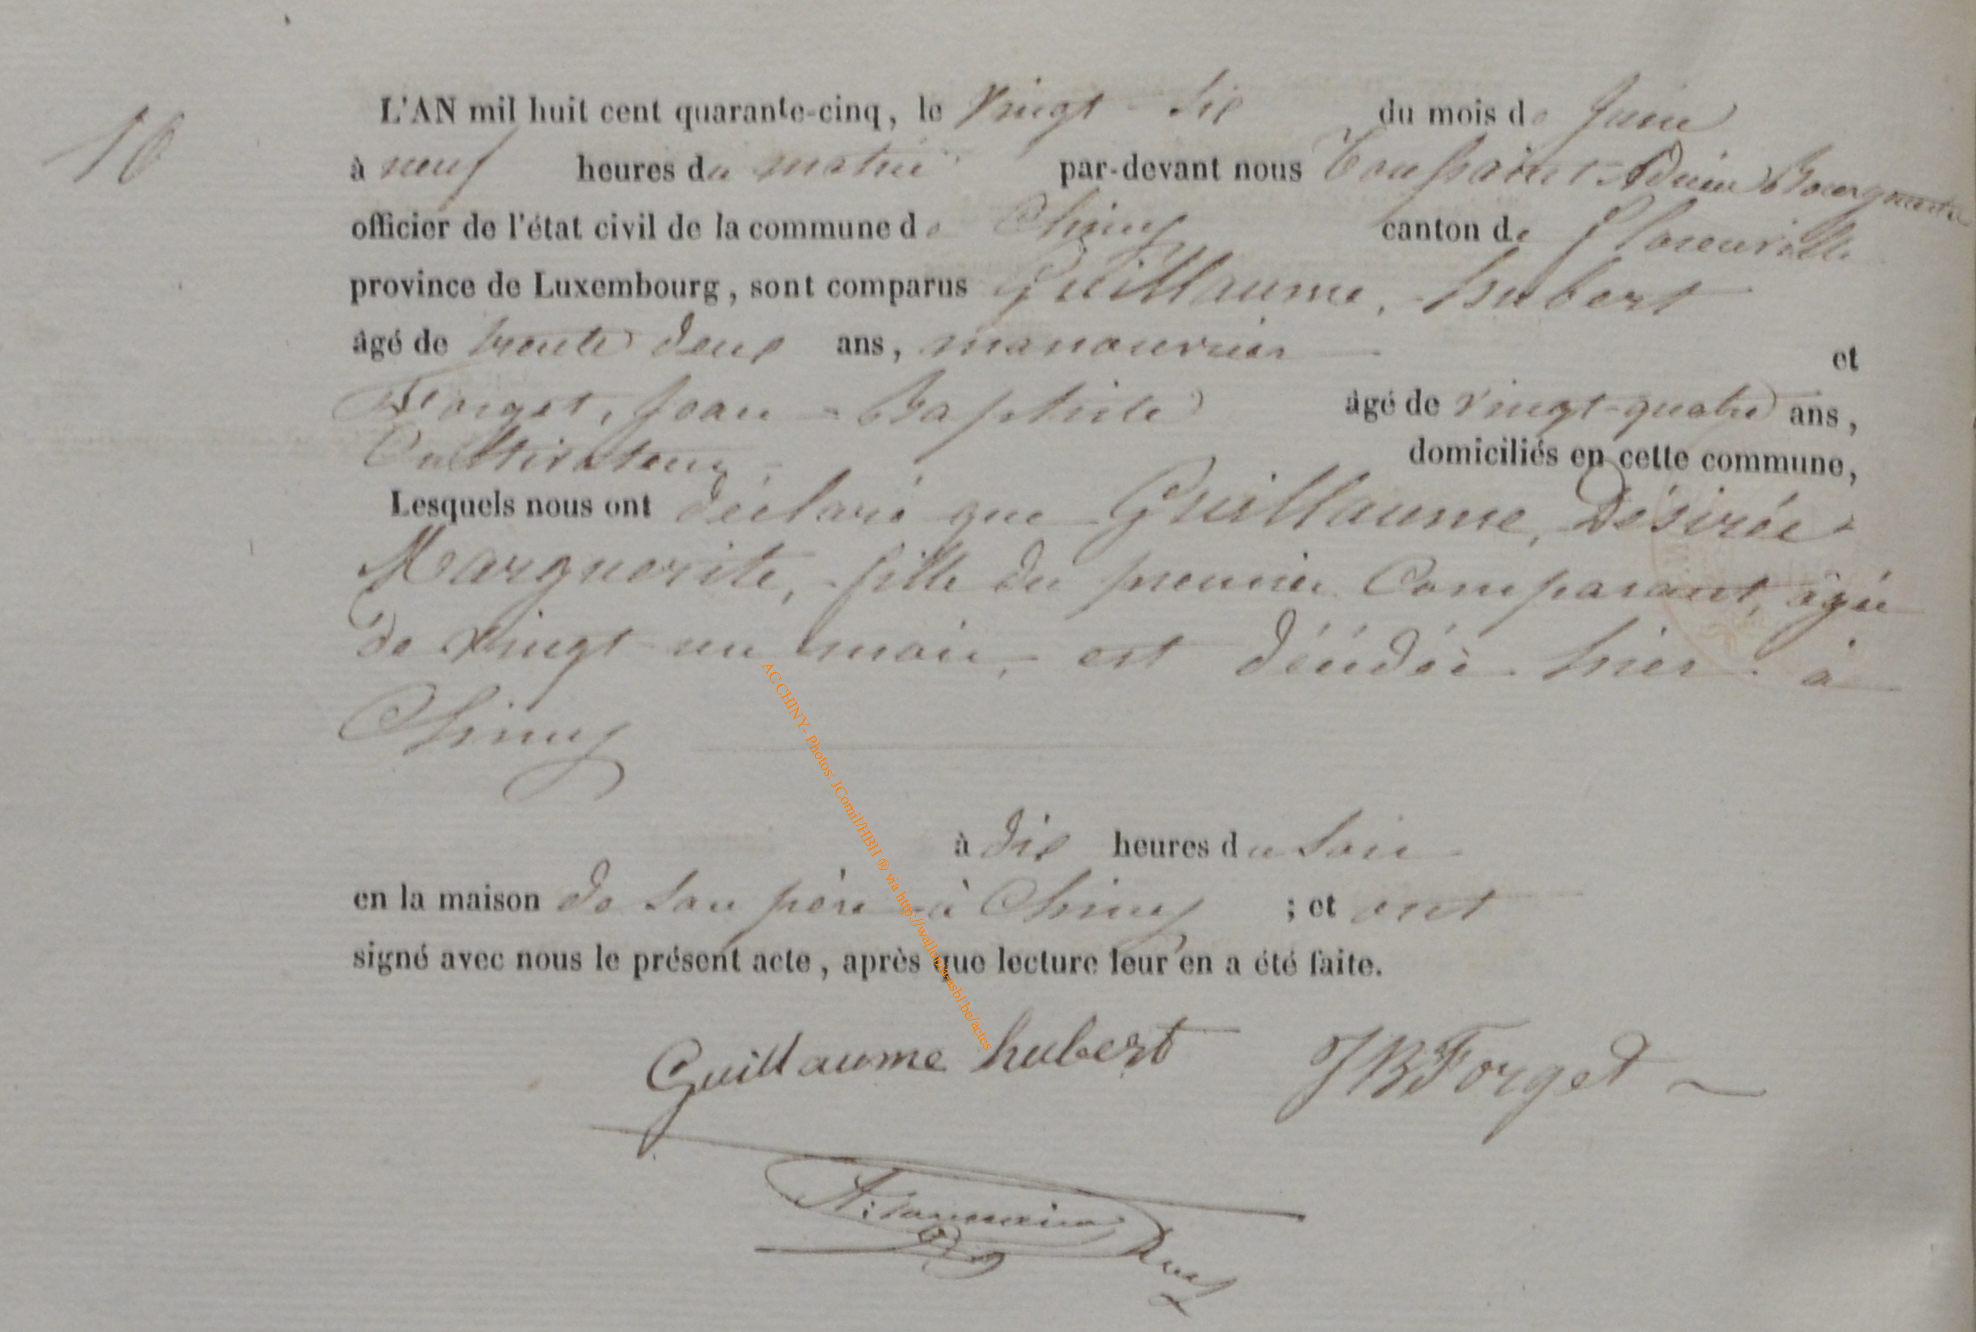 16
L'AN mil huit cent quarante-cinq, le vingt-six du mois de Juin
à neuf heures du matin par-devant nous Toussaint Adrien
officier de l'état civil de la commune de Chiny canton de florenville
province de Luxembourg, sont comparus Guillaume, hubert
âgé de trente deux ans, manouvrier et
Forget, Jean-Baptiste âgé de vingt-quatre ans,
Cultivateur domiciliés en cette commune,
Lesquels nous ont déclaré que Guillaume, Désirée
Marguerite, fille du premier Comparant, âgée
de vingt un mois, est décédée hier à
Chiny
à dix heures du soir
en la maison de son père à Chiny ; et ont
signé avec nous le présent acte, après que lecture leur en a été faite.
Guillaume hubert JBForget
ACCHINY- Photos: JComil/HBH ® via